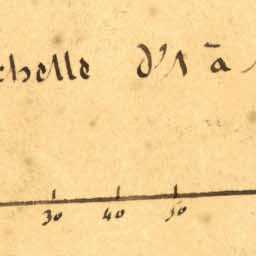 chelle d'1 à
30 40 50